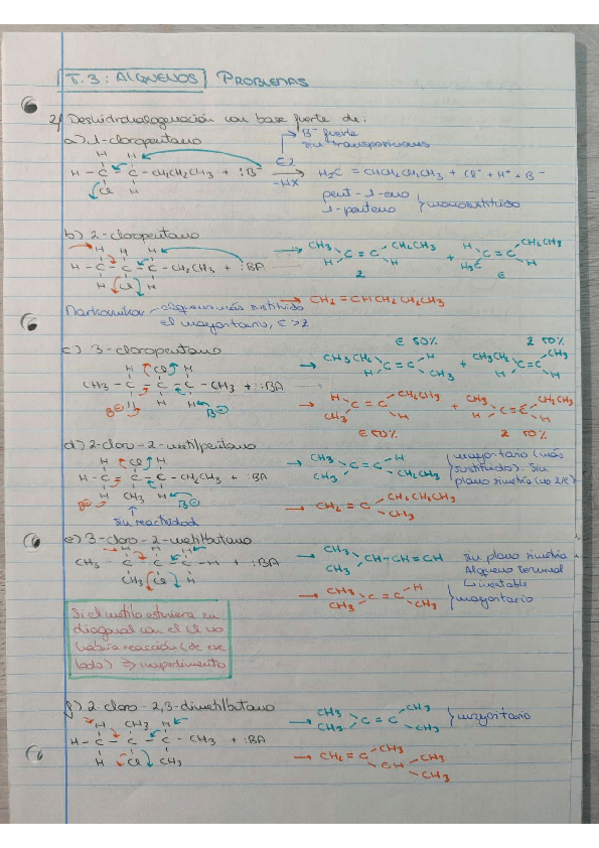 T.3: ALQUENOS PROBLEMAS
2) Deshidrohalogenación con base fuerte de:
a) 1-cloropentano
B⁻ fuerte
sin transposiciones
H H
H - C - C - CH2CH2CH3 + :B⁻ E2 -HX → H2C = CHCH2CH2CH3 + Cl⁻ + H⁺ + B⁻
Cl H
pent-1-eno
1-penteno } monosustituido
b) 2-cloropentano
H H H
H - C - C - C - CH2CH3 + :BA
H Cl H
→ CH3 H C = C CH2CH3 H
Z
+ H H3C C = C CH2CH3 H
E
→ CH2 = CHCH2CH2CH3
Markovnikov - alqueno más sustituido
el mayoritario, E > Z
c) 3-cloropentano
H Cl H
CH3 - C - C - C - CH3 + :BA
H H H
B⊖ B⊖
E 50%
→ CH3CH2 H C = C H CH3
Z 50%
+ CH3CH2 H C = C CH3 H
→ H CH3 C = C CH2CH3 H
E 50%
+ CH3 H C = C CH2CH3 H
Z 50%
d) 2-cloro-2-metilpentano
H Cl H
H - C - C - C - CH2CH3 + :BA
H CH3 H
B⊖ B⊖
sin reactividad
→ CH3 CH3 C = C H CH2CH3
mayoritario (más
sustituido). Sin
plano simetría (no Z/E)
→ CH2 = C CH2CH2CH3 CH3
e) 3-cloro-2-metilbutano
H H H
CH3 - C - C - C - H + :BA
CH3 Cl H
→ CH3 CH3 CH-CH=CH
sin plano simetría
Alqueno terminal
↳ inestable
→ CH3 CH3 C = C H CH3 } mayoritario
Si el metilo estuviera en
diagonal con el Cl no
habría reacción (de ese
lado) ⇒ impedimento
f) 2-cloro-2,3-dimetilbutano
H CH3 H
H - C - C - C - CH3 + :BA
H Cl CH3
→ CH3 CH3 C = C CH3 CH3 } mayoritario
→ CH2 = C CH3 CH CH3 CH3